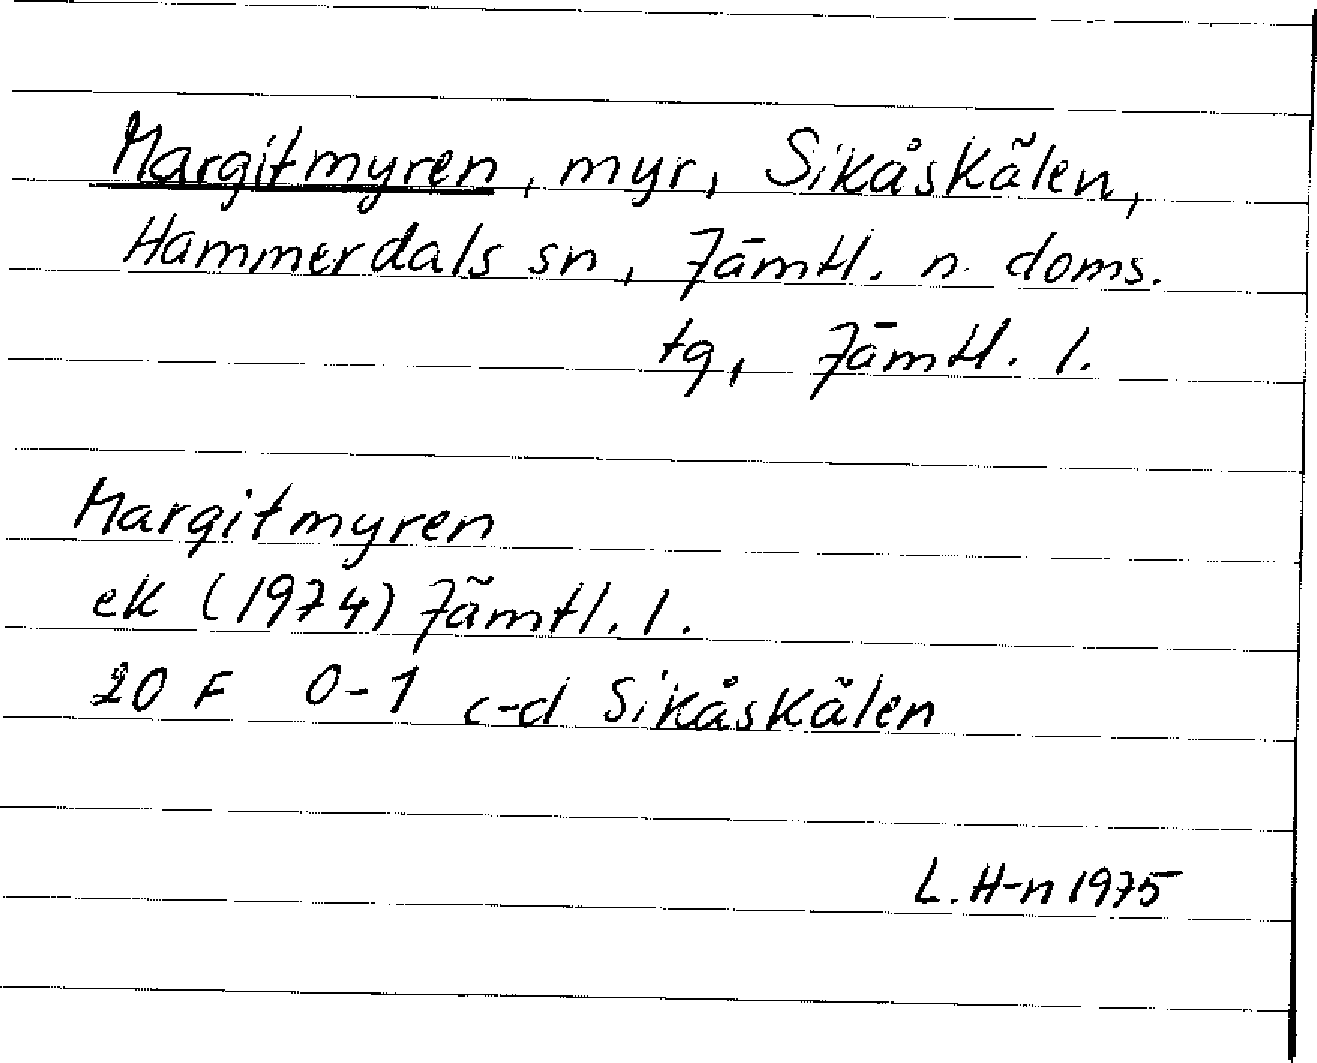 Margitmyren, myr, Sikåskälen,
Hammerdals sn, Jämtl. n. doms.
tg, Jämtl. l.
Margitmyren
ek (1974) Jämtl. l.
20 F 0-1 c-d Sikåskälen
L. H-n 1975